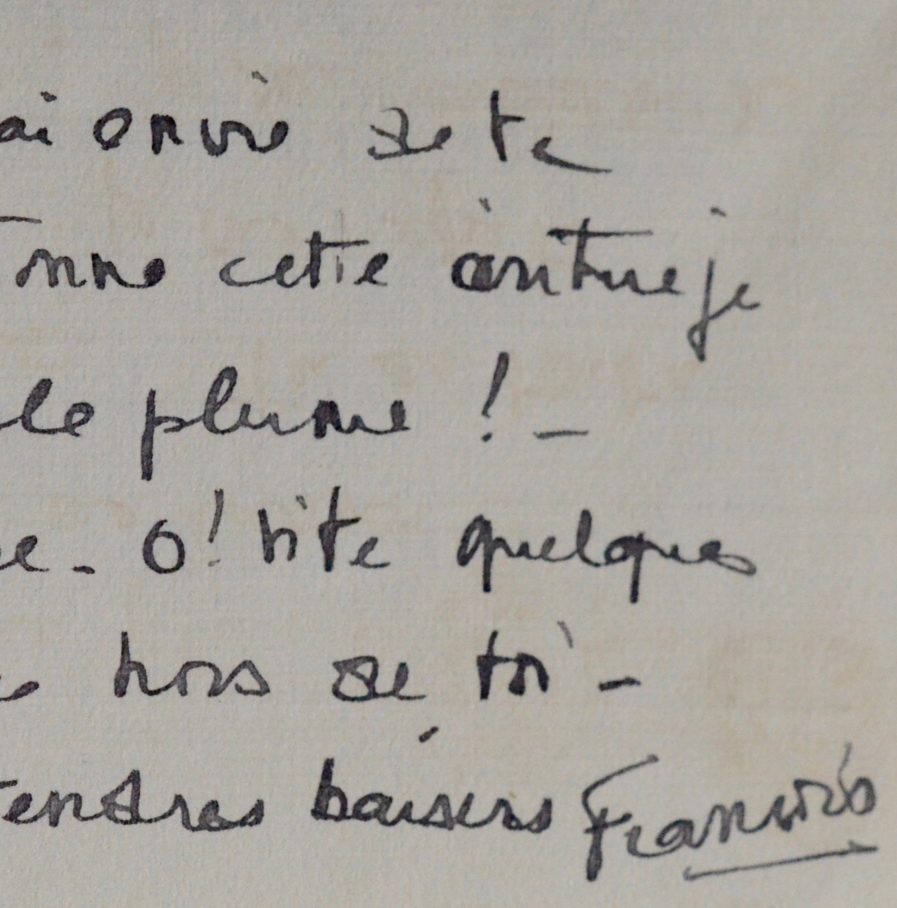 ai envie de te
onne cette entrée je
le plume ! -
e - O ! vite quelques
hors de toi -
tendres baisers François